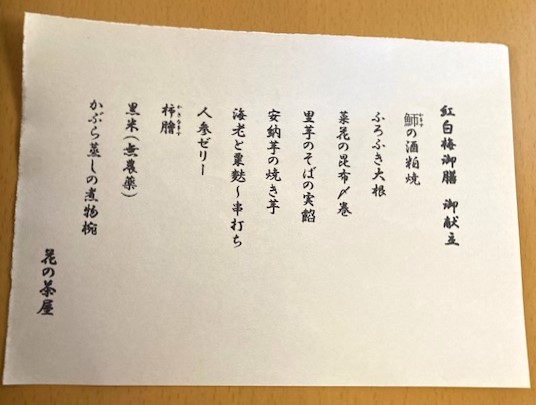 紅白梅御膳 御献立
鰤の酒粕焼
かます
ふろふき大根
菜花の昆布〆巻
里芋のそばの実餡
安納芋の焼き芋
海老と粟麩〜串打ち
人参ゼリー
柿膾
かきなます
黒米(無農薬)
かぶら蒸しの煮物椀
花の茶屋